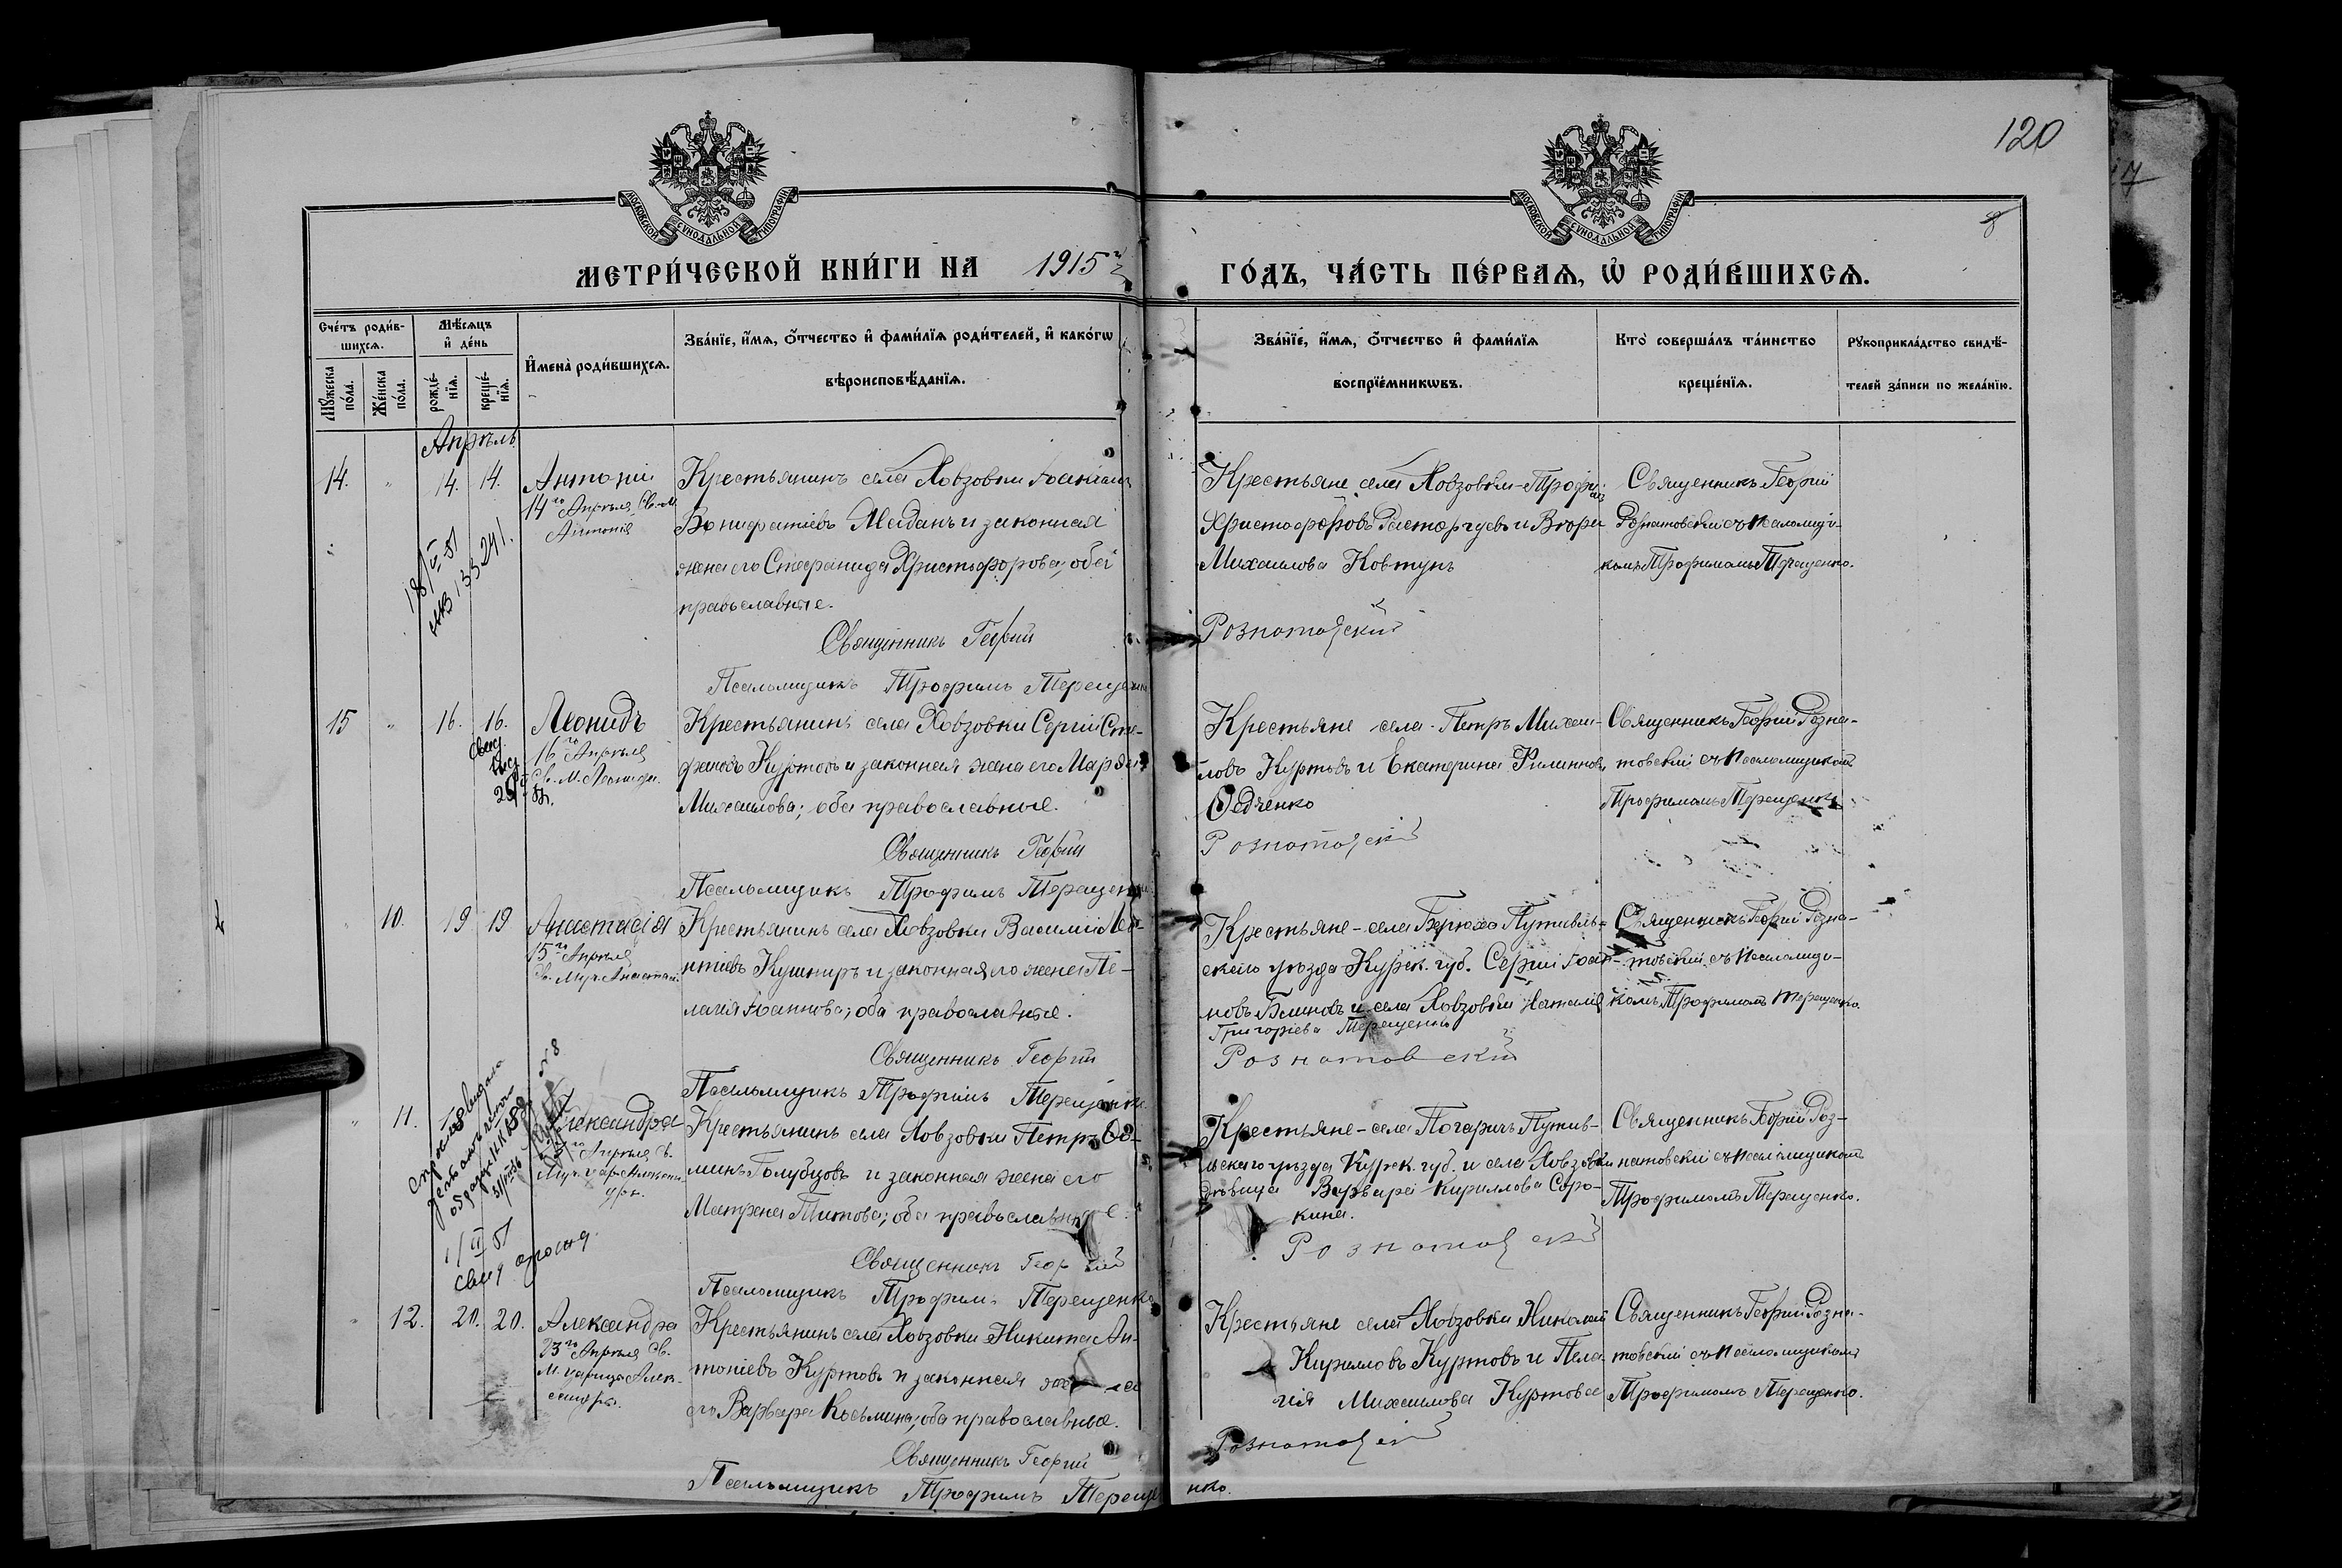 120
8
МОСКОВСКОЙ СѴНОДАЛЬНОЙ ТИПОГРАФІИ
МОСКОВСКОЙ СѴНОДАЛЬНОЙ ТИПОГРАФІИ
МЕТРИ́ЧЕСКОЙ КНИ́ГИ НА 1915 ГО́ДЪ, ЧА́СТЬ ПЕ́РВАѦ, Ѡ҆ РОДИ́ВШИХСѦ.
Сче́тъ роди́в-
шихсѧ.
Мꙋ́жеска по́ла.
Же́нска по́ла.
Мѣ́сѧцъ и҆ де́нь
рожде́-нїѧ.
креще́-нїѧ.
И҆мена̀ роди́вшихсѧ.
Зва́нїе, и҆́мѧ, ѻ҆́тчество и҆ фами́лїѧ роди́телей, и҆ како́гѡ
вѣроисповѣ́данїѧ.
Зва́нїе, и҆́мѧ, ѻ҆́тчество и҆ фами́лїѧ
воспрїе́мникѡвъ.
Кто̀ соверша́лъ та́инство
креще́нїѧ.
Рꙋкоприкла́дство свидѣ́-
телей за́писи по жела́нїю.
Апрѣль
14. " 14. 14. Антоній
14го Апрѣля Св. М.
Антонія
Крестьянинъ села Ховзовки Іоакимъ
Вонифатіевъ Майданъ и законная
жена его Стефанида Христофорова, оба
православные.
Священникъ Георгій
Псаломщикъ Трофимъ Терещенко
Крестьяне села Ховзовки Трофимъ
Христофоровъ Расторгуевъ и
Михаилова Ковтунъ
Розматовскій
Священникъ Георгій
Розматовскій съ псаломщи-
комъ Трофимомъ Терещенко.
133241.
15 " 16. 16. Леонидъ
16го Апрѣля
Св. М. Леонида.
Крестьянинъ села Ховзовки Сергій Сте-
фановъ Куртовъ и законная жена его Марѳа
Михаилова; оба православные.
Священникъ Георгій
Псаломщикъ Трофимъ Терещенко
Крестьяне села Петръ Михаи-
ловъ Куртовъ и Екатерина Филиппова
Ѳедченко
Розматовскій
Священникъ Георгій Розма-
товскій съ псаломщикомъ
Трофимомъ Терещенко
" 10. 19 19 Анастасія
15го Апрѣля
Св. Муч. Анастасіи.
Крестьянинъ села Ховзовки Василій Ле-
нтіевъ Кушниръ и законная его жена Пе-
лагія Іоаннова; оба православные.
Священникъ Георгій
Псаломщикъ Трофимъ Терещенко
Крестьяне села Берюха Путивль-
скаго уѣзда Курск. губ. Сергій Іоан-
новъ Блиновъ и села Ховзовки Наталія
Григоріева Терещенко
Розматовскій
Священникъ Георгій Розма-
товскій съ псаломщи-
комъ Трофимомъ Терещенко.
" 11. Александра
Апрѣля Св.
Муч. цар. Алексан-
дры.
Крестьянинъ села Ховзовки Петръ Ѳо-
минъ Голубцовъ и законная жена его
Матрена Титова; оба православные.
Священникъ Георгій
Псаломщикъ Трофимъ Терещенко
Крестьяне села Погаричъ Путив-
льскаго уѣзда Курск. губ. и села Ховзовки
дѣвица Варвара Кириллова Соро-
кина.
Розматовскій
Священникъ Георгій Роз-
матовскій съ псаломщикомъ
Трофимомъ Терещенко.
" 12. 20. 20. Александра
23го Апрѣля Св.
М. царицы Алек-
сандры.
Крестьянинъ села Ховзовки Никита Ан-
тоніевъ Куртовъ и законная жена
его Варвара Косьмина; оба православные.
Священникъ Георгій
Псаломщикъ Трофимъ Терещенко.
Крестьяне села Ховзовки Николай
Кирилловъ Куртовъ и Пела-
гія Михаилова Куртова
Розматовскій
Священникъ Георгій Розма-
товскій съ псаломщикомъ
Трофимомъ Терещенко.